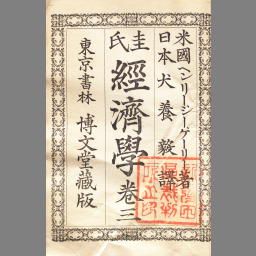 米國ヘンリージーゲーリー著
日本犬養毅譯
圭氏經濟學卷三
東京書林 博文堂藏版